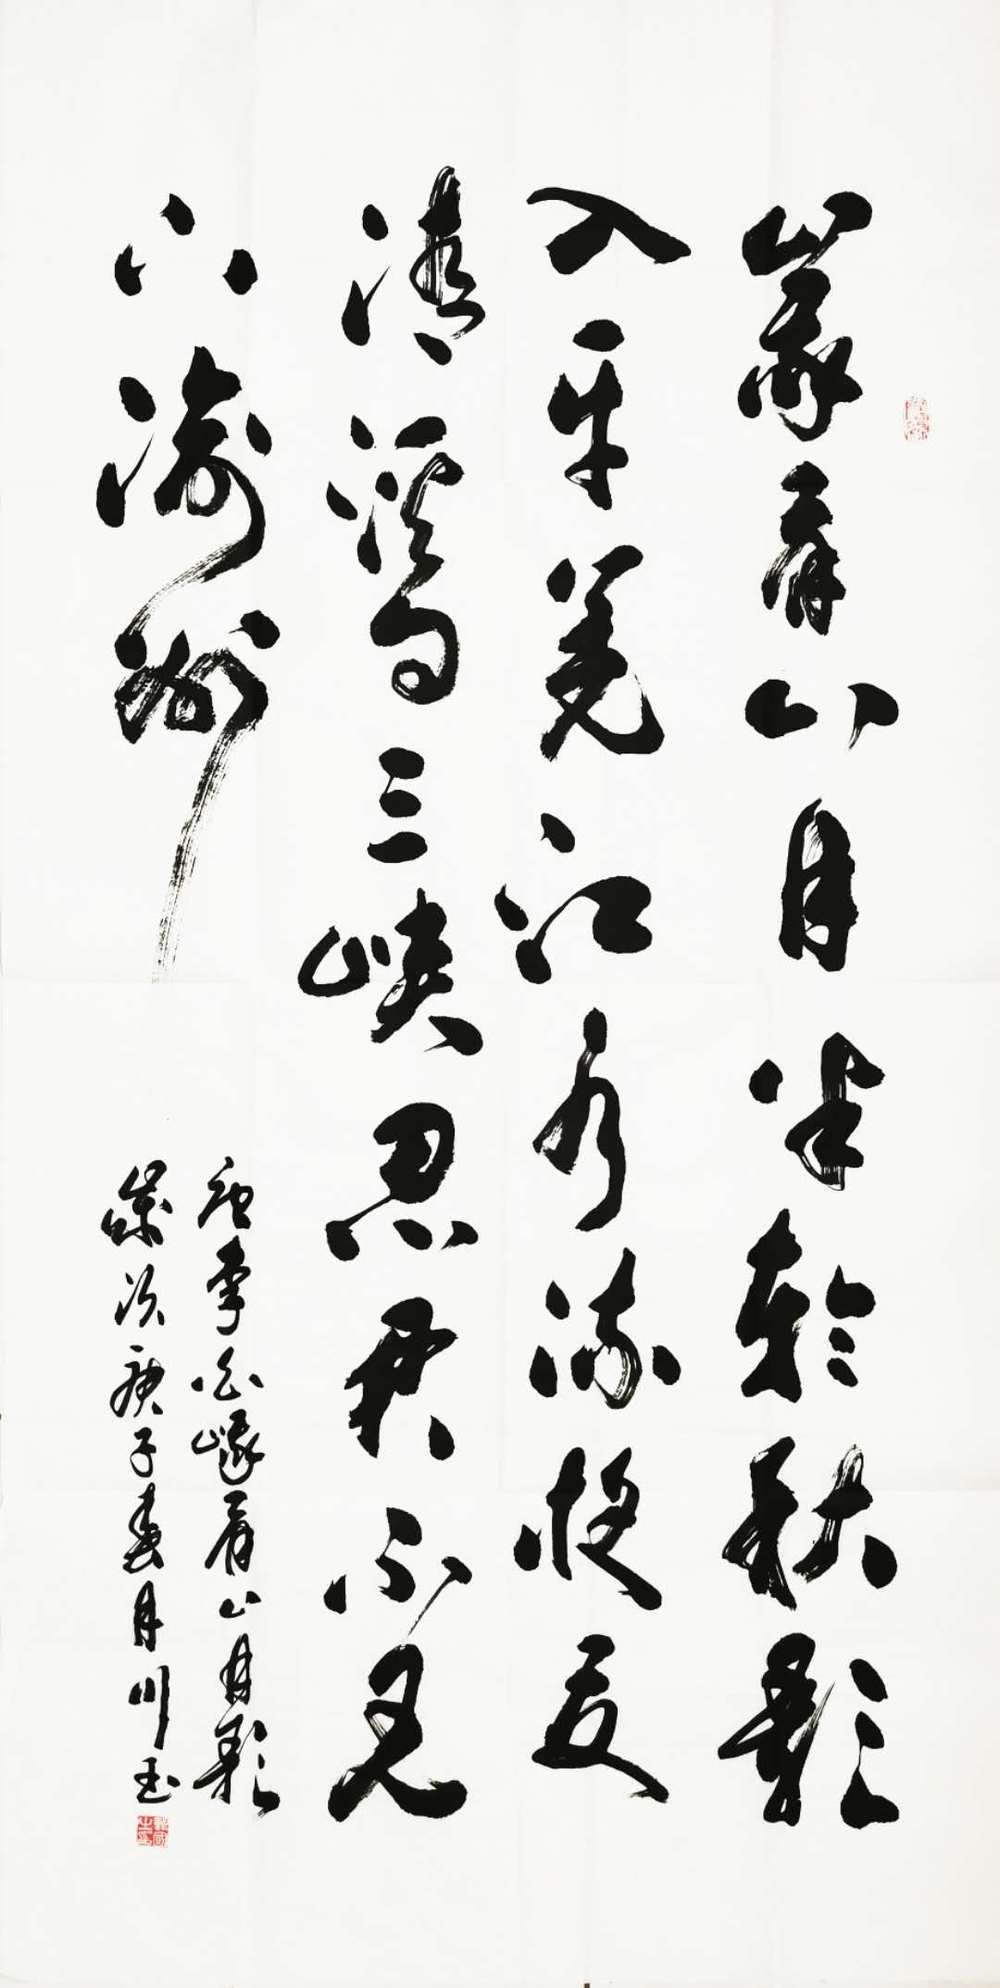 峨眉山月半轮秋影
入平羌江水流夜发
清溪向三峡思君不见
下渝州
唐李白峨眉山月歌
岁次庚子春月川玉